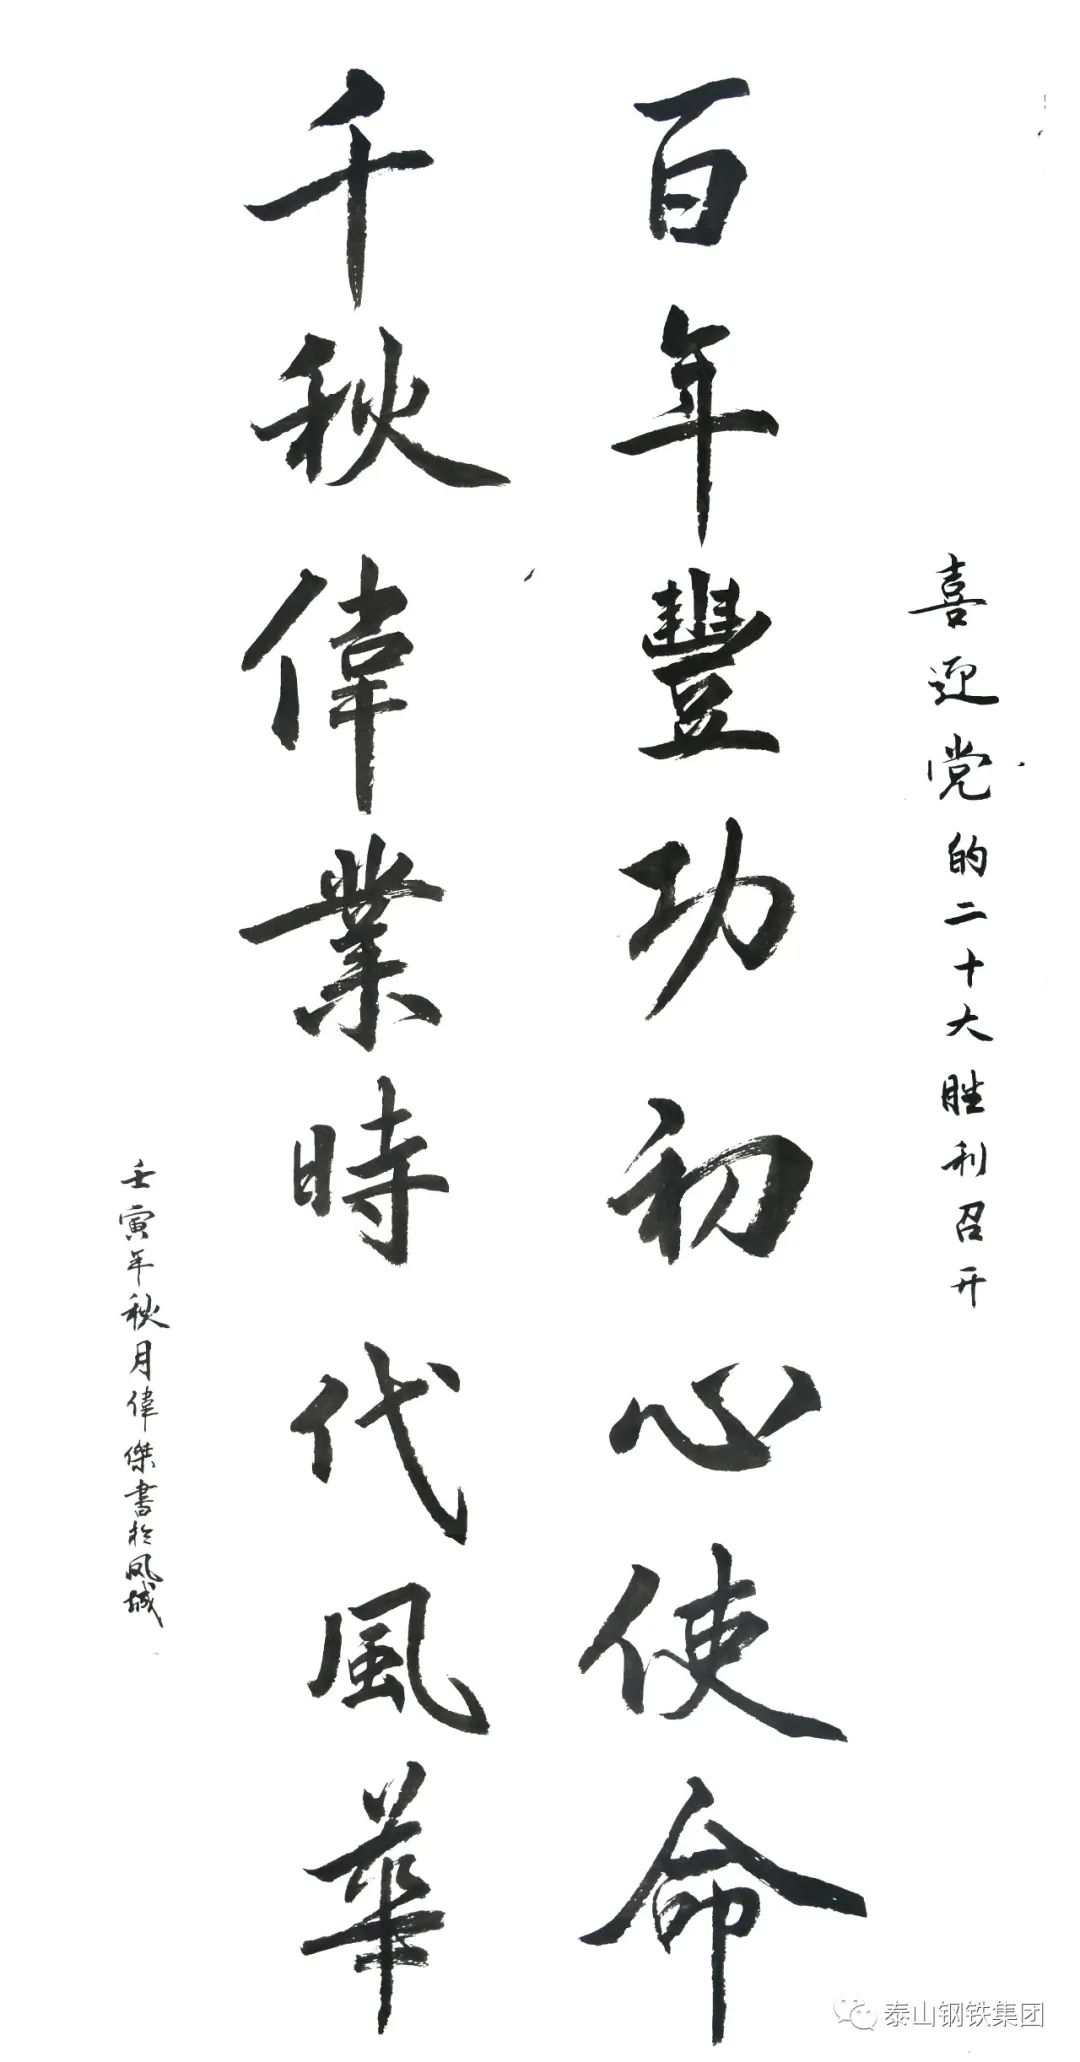 喜迎党的二十大胜利召开
百年豐功初心使命
千秋偉業時代風華
壬寅年秋月偉傑書於凤城
泰山钢铁集团